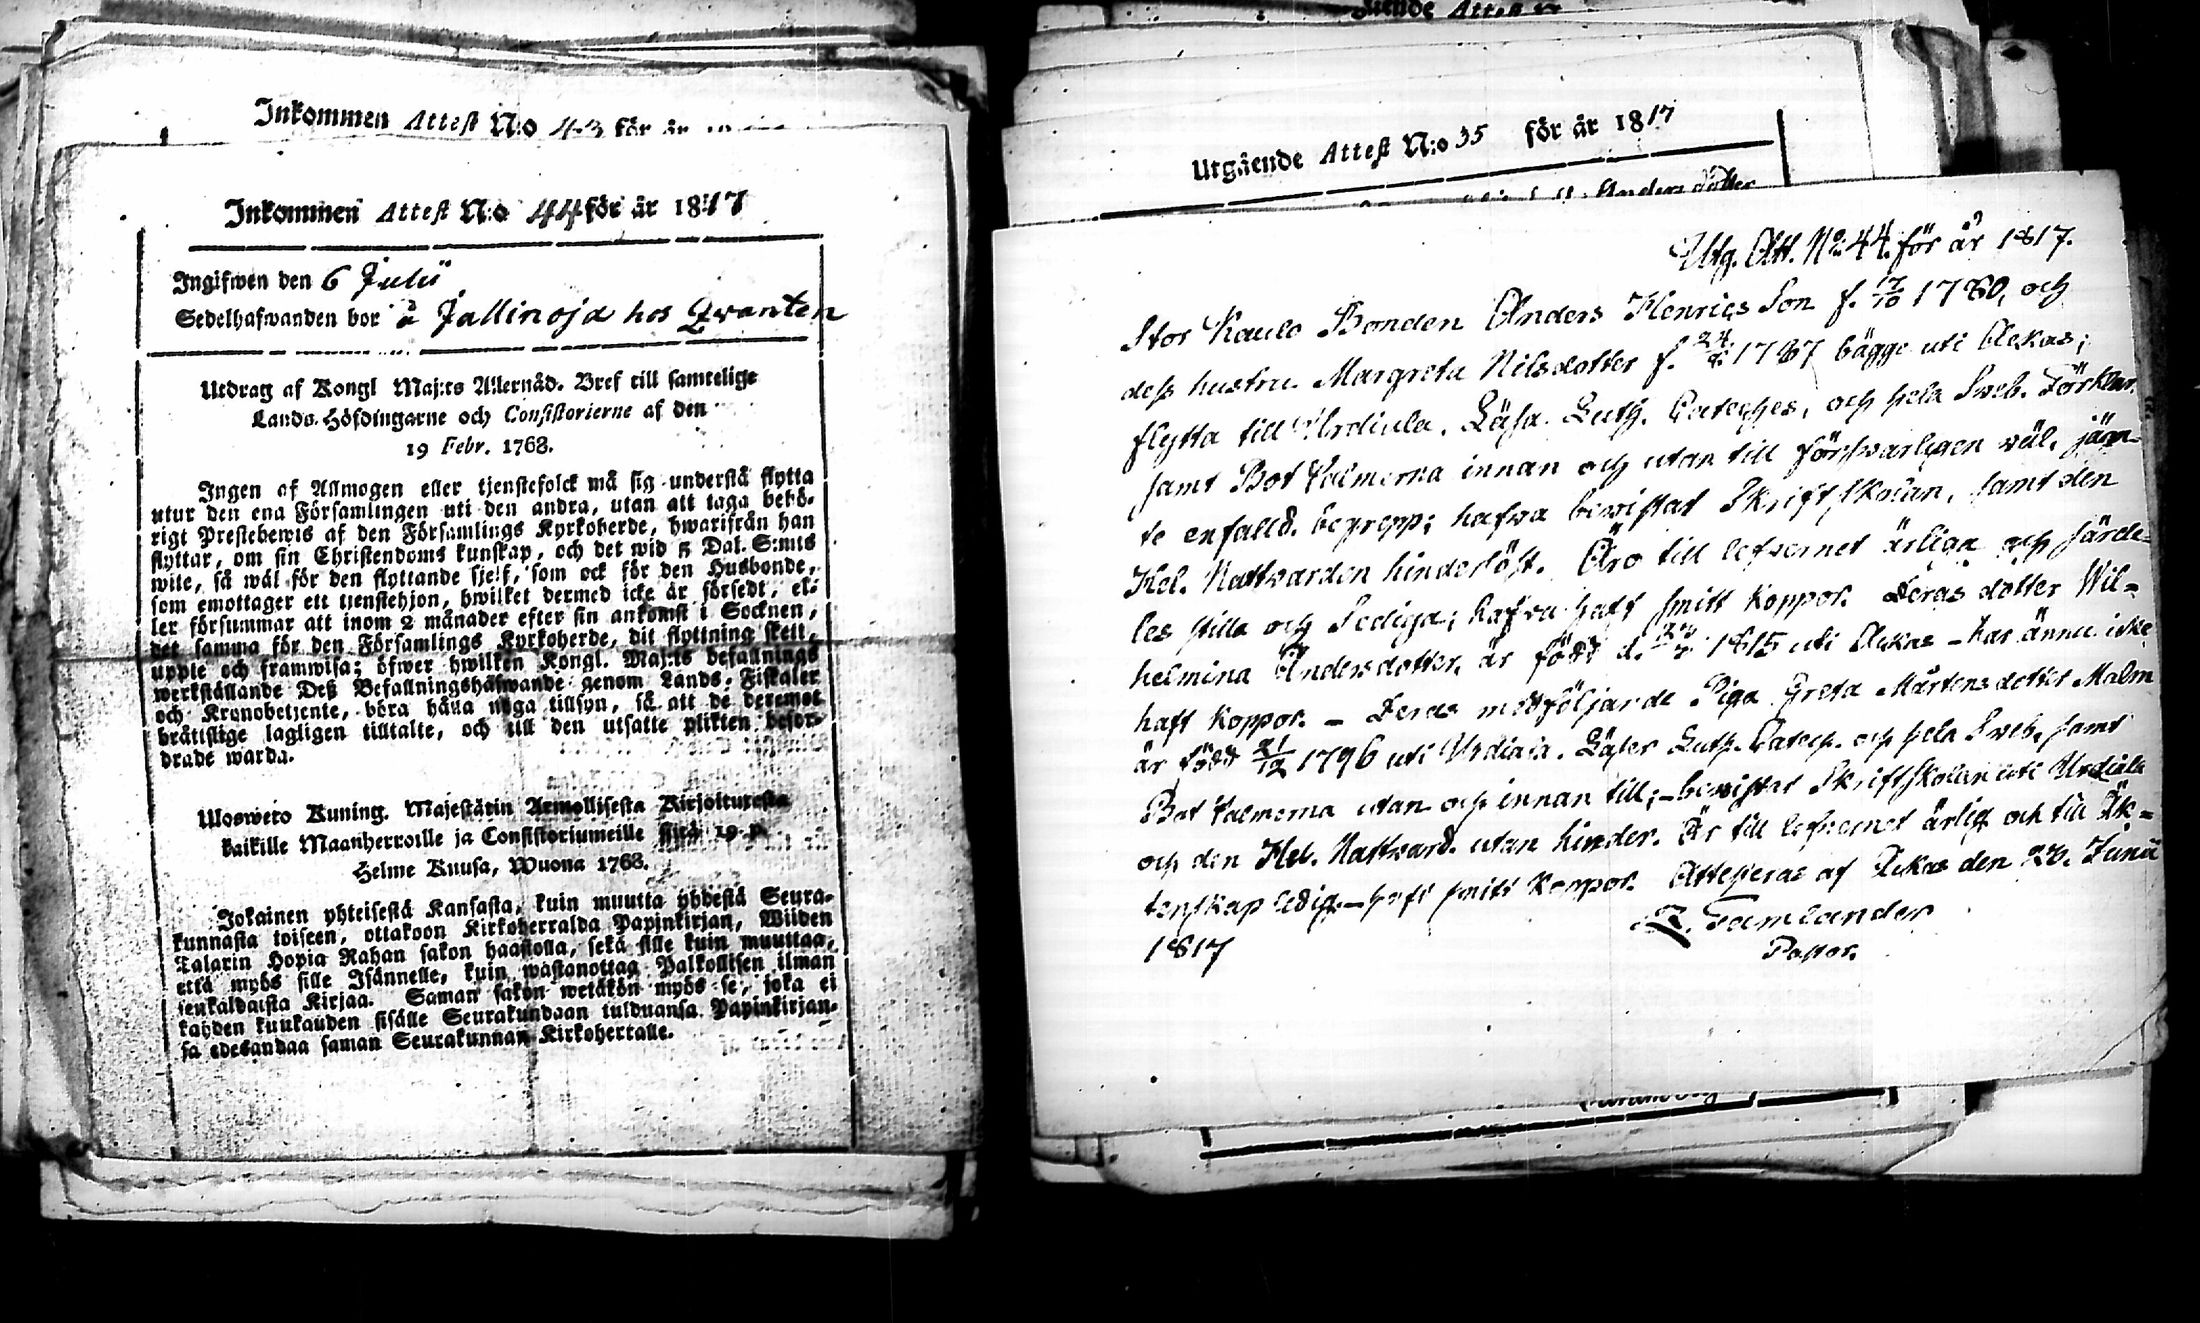 Inkommen Attest N:o 43 för år
Inkommen Attest N:o 44 för år 1817
Ingifwen den 6 Julii
Sedelhafwanden bor å Jallinoja hos Qwanten
Utdrag af Kongl Maj:ts Allernåd. Bref till samtelige
Lands-Höfdingarne och Consistorierne af den
19 Febr. 1768.
Ingen af Allmogen eller tjenstefolck må sig understå flytta
utur den ena Församlingen uti den andra, utan att taga behö-
rigt Prestebewis af den Församlings Kyrkoherde, hwarifrån han
flyttar, om sin Christendoms kunskap, och det wid 5 Dal. S:mts
wite, så wäl för den flyttande sjelf, som ock för den Husbonde,
som emottager ett tjenstehjon, hwilket dermed icke är försedt, el-
ler försummar att inom 2 månader efter sin ankomst i Socknen,
det samma för den Församlings Kyrkoherde, dit flyttning skett,
uppte och framwisa; öfwer hwilken Kongl. Maj:ts befallnings
werkställande Deß Befallningshafwande genom Lands-Fiskaler
och Kronobetjente, böra hålla noga tillsyn, så att de deremot
brättslige lagligen tilltalte, och till den utsatte plikten befor-
drade warda.
Ulosweto Kuning. Majestätin Armollisesta Kirjoituresta
kaikille Maanherroille ja Consistoriumeille siitä 19 p.
Helme Kuusa, Wuona 1768.
Jokainen yhteisestä Kansasta, kuin muutta yhdestä Seura-
kunnasta toiseen, ottakoon Kirkoherralda Papinkirjan, Wiiden
Talarin Hopia Rahan sakon haastolla, sekä sille kuin muuttaa,
että myös sille Isännelle, kuin wastanottaa Palkollisen ilman
senkaldaista Kirjaa. Saman sakon wetäkön myös se, joka ei
kahden kuukauden sisälle Seurakundaan tulduansa Papinkirjan-
sa edesandaa saman Seurakunnan Kirkoherralle.
Utgående Attest N:o 35 för år 1817
Anders dotter
Utg. Att. No 44. för år 1817.
Stor Kaulo Bonden Anders Henrics Son f. 17/10 1780, och
deß hustru Margreta Nilsdotter f. 1787 bägge uti Ackas;
flytta till Urdiala. Läsa Luth. Cateches, och hela Sweb. Förklar.
samt Bot Psalmerna innan och utan till försvarligen wäl, jäm-
te enfalld. begrepp; hafwa bewistat Skriftskolan, samt den
Hel. Nattvarden hinderlöst. Äro till lefvernet ärliga och särde-
les stilla och Sediga; hafva haft smitt koppor. Deras dotter Wil-
helmina Andersdotter, är född d. 1815 uti Ackas – har ännu icke
haft koppor. – Deras medföljande Piga Greta Mårtensdotter Malm
är född 21/12 1796 uti Urdiala. Läser Luth. Catech. och hela Sweb. samt
Bot Psalmerna utan och innan till; – bewistat Skriftskolan uti Urdiala
och den Hel. Nattvard. utan hinder. Är till lefvernet ärlig och till Äk-
tenskap ledig – haft smitt koppor. Attesteras af Ackas den 28. Junii
1817
Tamlander
Pastor.